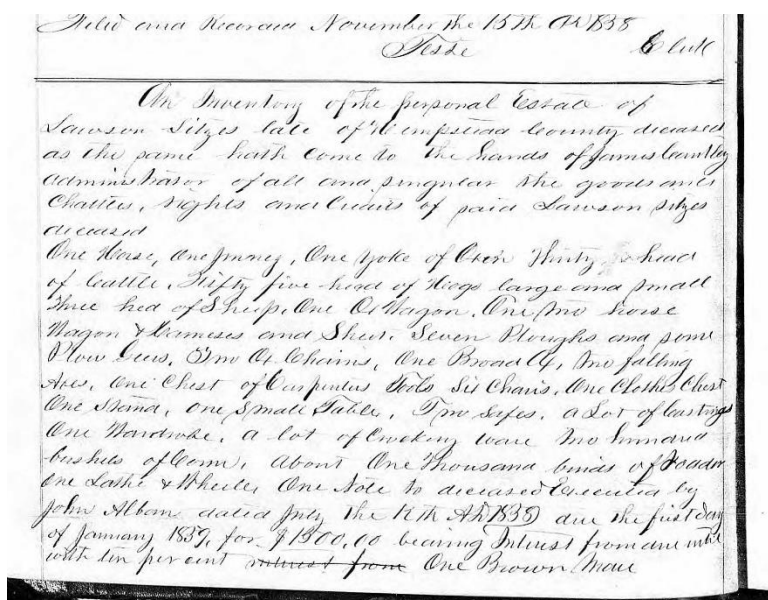 Filed and Recorded November the 15th AD 1838
Teste Clerk
An Inventory of the personal Estate of
Lawson Sitzes late of Hempstead County deceased
as the same hath come to the hands of James
administrator of all and singular the goods and
Chattles, rights and Credits of said Lawson Sitzes
deceased
One Horse, One Jinney, One Yoke of Oxen Thirty head
of Cattle, Fifty five head of Hogs large and small
Three hed of Sheep, One Ox Wagon, One two horse
Wagon & and Seven Ploughs and some
Plow Geers, Two Ox Chains, One Broad Ax, two falling
Axes, One Chest of Carpenters Tools Six Chairs, One Clothes Chest
One Stand, one Small Table, Two Safes, a Lot of Castings
One Wardrobe, a lot of Cooking ware two hundred
bushels of Corn, about One Thousand binds of Foader
One Lathe & Wheele, One Note to deceased Executed by
John Alban dated July the 12th AD 1838 due the first day
of January 1839, for $1300.00 bearing Interest from due
with ten per cent interest from One Brown Mare